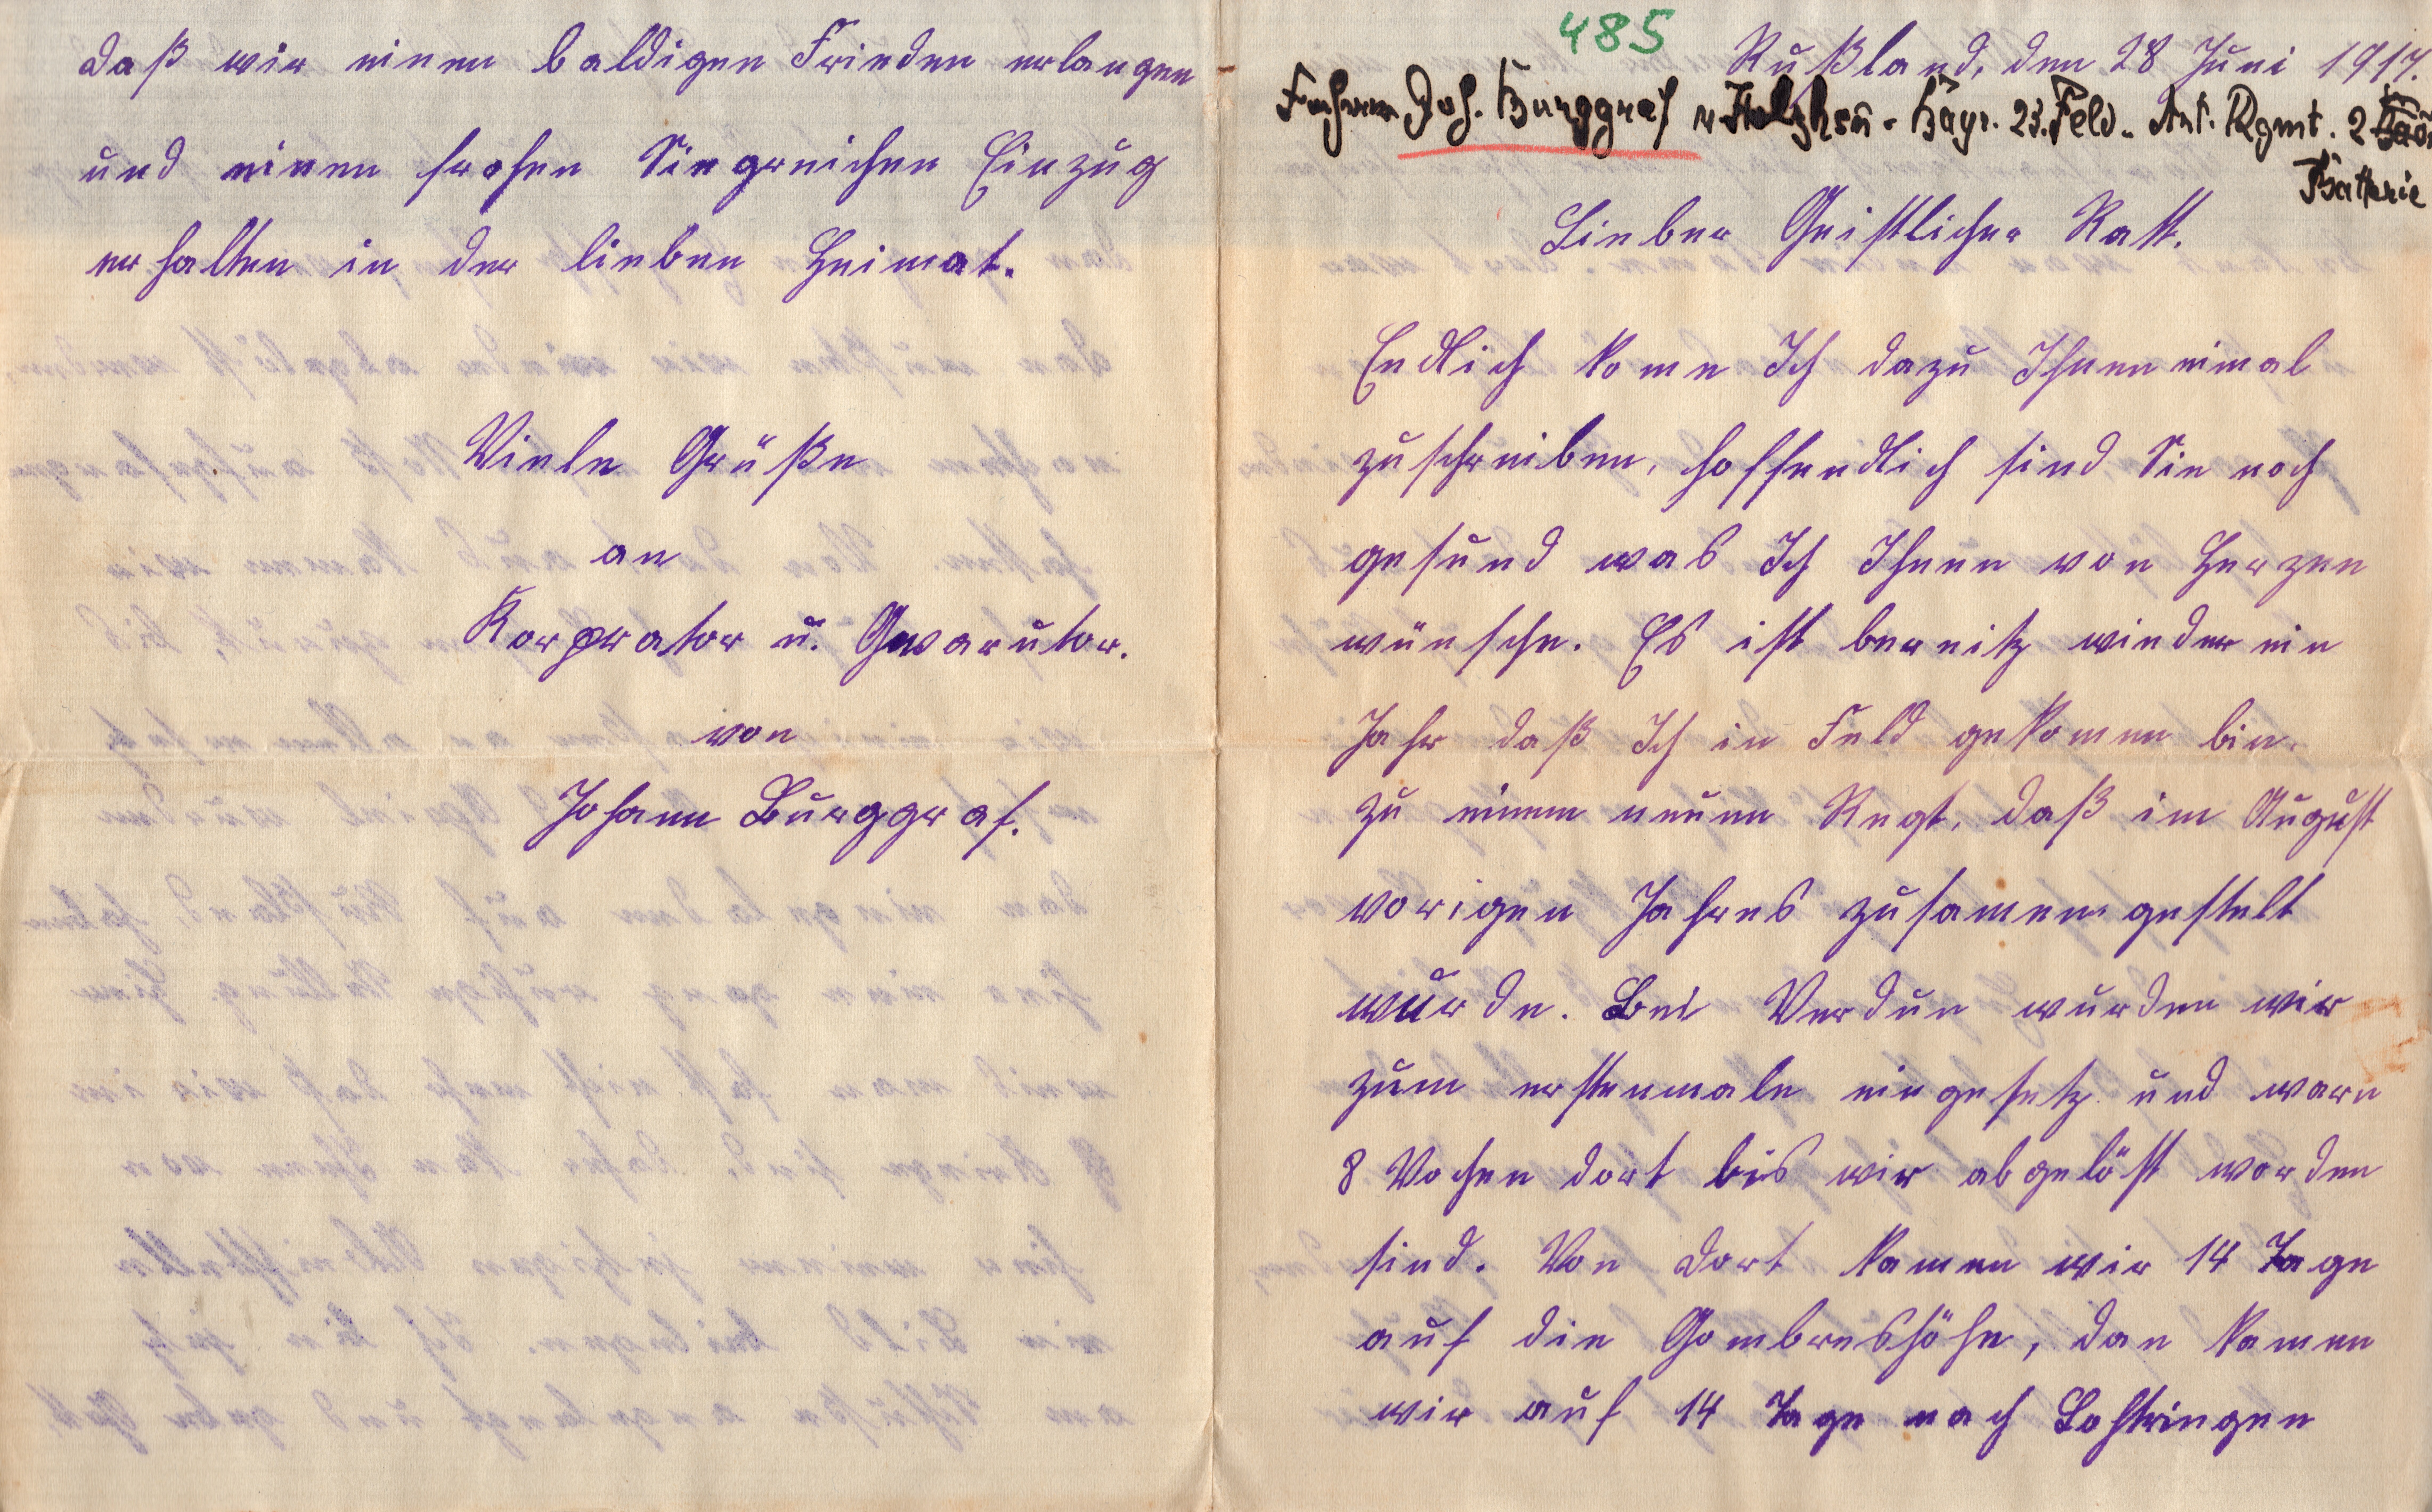 daß wir einen baldigen Frieden erlangen
und einen frohen Siegreichen Einzug
erhalten in der lieben Heimat.
Viele Grüße
an
Korprator u. Gwarutor.
von
Johann Burggraf.
485
Rußland, den 28 Juni 1917.
Joh. Burggraf v. Holzhsn. Bayr. 23. Feld. Art. Rgmt. 2
Batterie
Lieber Geistlicher Ratt.
Endlich kome Ich dazu Ihnen eimal
zuschreiben, hoffendlich sind Sie noch
gesund was Ich Ihnen von Herzen
wünsche. Es ist bereitz wieder ein
Jahr daß Ich in Feld gekomen bin.
zu einem neuen Regt. daß im August
vorigen Jahres zusamengestelt
wurde. Bei Verdun wurden wir
zum erstenmale eingesetz und waren
8 Wochen dort bis wir abgelöst worden
sind. Von dort kamen wir 14 Tage
auf die Gombreshöhe, dan kamen
wir auf 14 Tage nach Lohtringen